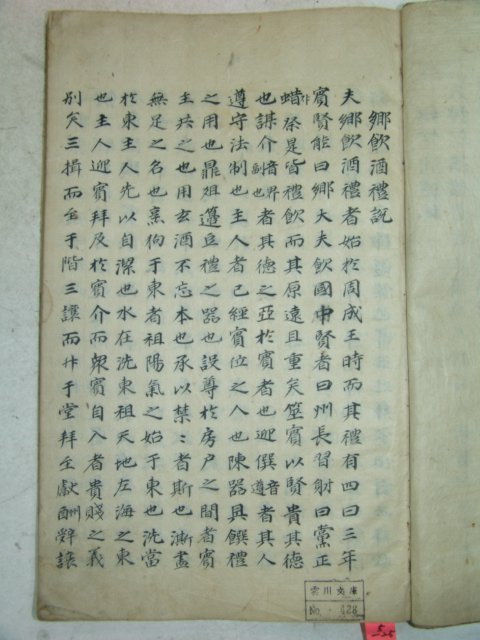 鄉飲酒禮說
夫鄉飲酒禮者始於周成王時而其禮有四曰三年
賓賢能曰鄉大夫飲國中賢者曰州長習射曰黨正
蜡祭是皆禮飲而其原遠且重矣筮賓以賢貴其德
也謀介音界副也者其德之亞於賓者也迎僎音遵者其人
遵守法制也主人者已經賓位之人也陳器具饌禮
之用也鼎俎籩豆禮之器也設尊於房戶之間者賓
主共之也用玄酒不忘本也承以禁〻者斯也澌盡
無足之名也烹狗于東者祖陽氣之始于東也洗當
於東主人先以自潔也水在洗東祖天地左海之東
也主人迎賓拜及於賓介而衆賓自入者貴賤之義
別矣三揖而至于階三讓而升于堂拜至獻酬辭讓
雲川文庫
No. 428